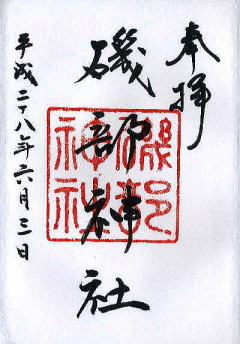 奉拝
磯部神社
磯部神社
平成二八年六月三日